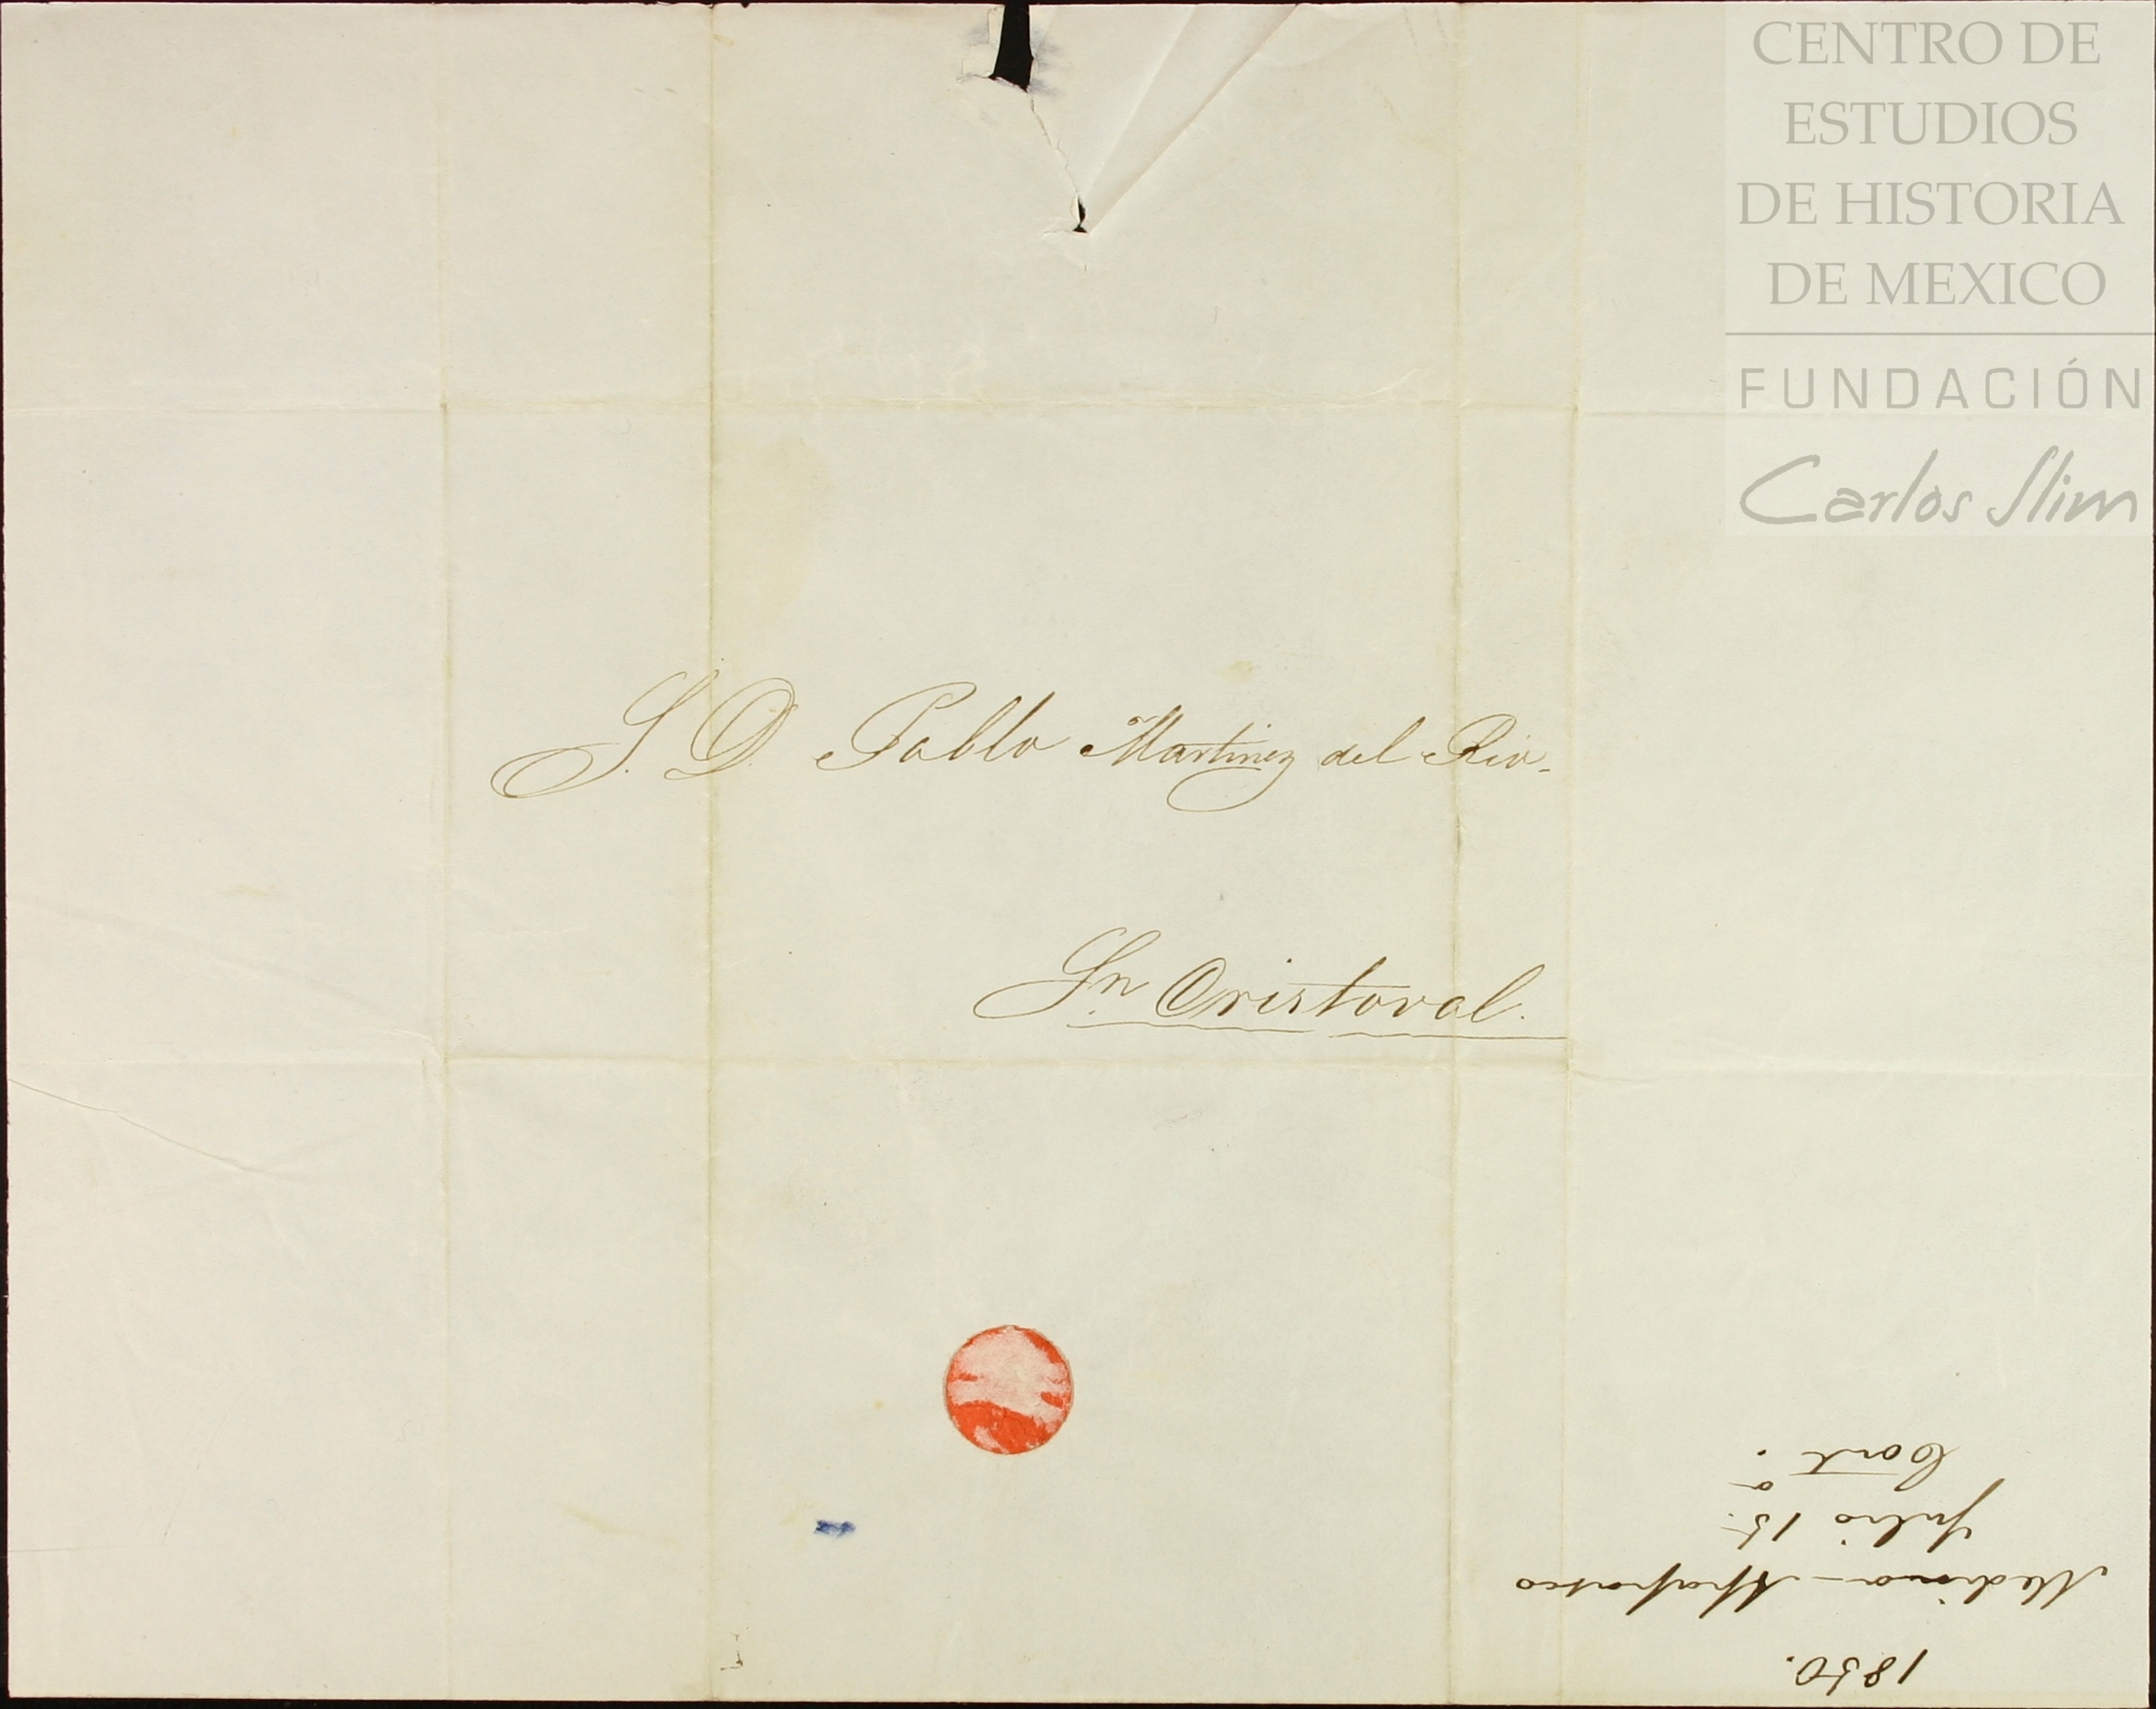 CENTRO DE
ESTUDIOS
DE HISTORIA
DE MEXICO
FUNDACIÓN
Carlos Slim
S. D. Pablo Martinez del Rio.
Sn. Cristoval.
1850.
Medina - Apapasco
Julio 15.
Cont.